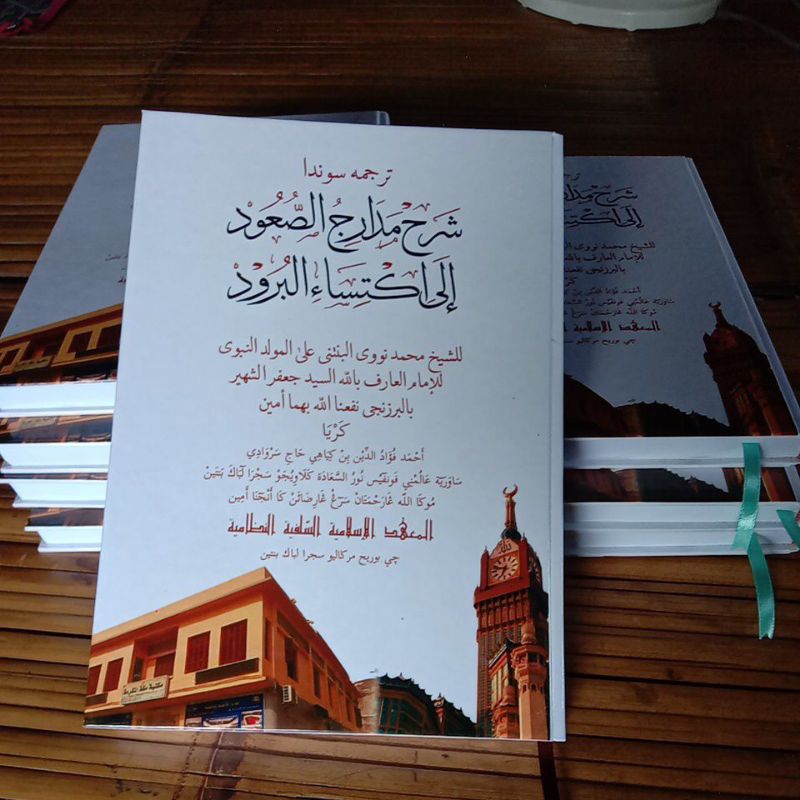 ترجمه سوندا
شَرَح مَدَارِجُ الصُّعُودْ
إِلَى اكْتِسَاءِ البُرُودْ
للشيخ محمد نووي البنتني على المولد النبوى
للإمام العارف بالله السيد جعفر الشهير
بالبرزنجى نفعنا الله بهما أمين
كَرْيَا
أَحْمَد فُؤَادُ الدِّيْن بِنْ كِيَاهِي حَاجِ سَرْوَادِي
سَاوَرِيَهْ عَالُمْنِي فَونڤيْس نُورُ السَّعَادَة كَلَاوِيْجَوْ سَجْرَا لَبَاكْ بَنْتَيْنْ
مُوكَا اللّٰه
أمِين
المعهد الإسلامية السلفية النظامية
چي بوريح مركاليو سجرا لباك بنتين
مكتبة مكة المكرمة